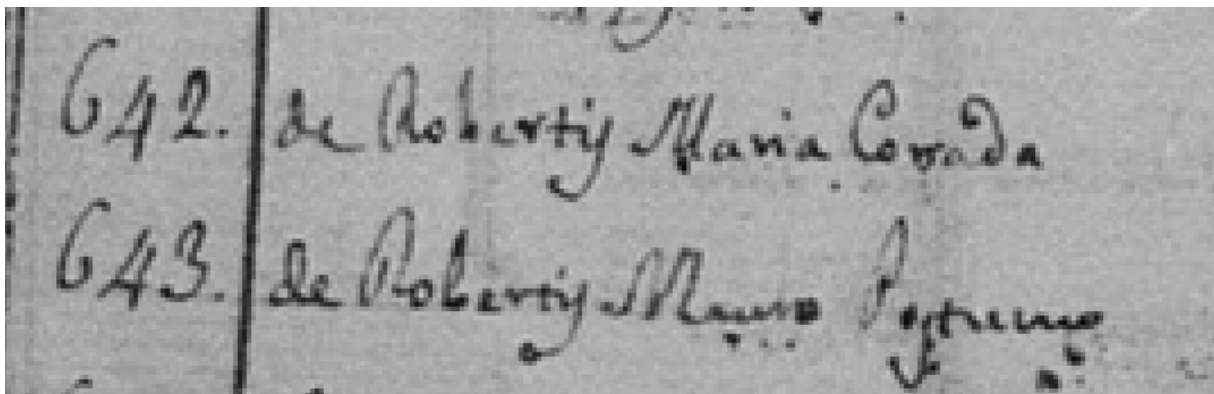 642. de Robertij Maria Corrada
643. de Robertij Mauro Postumo